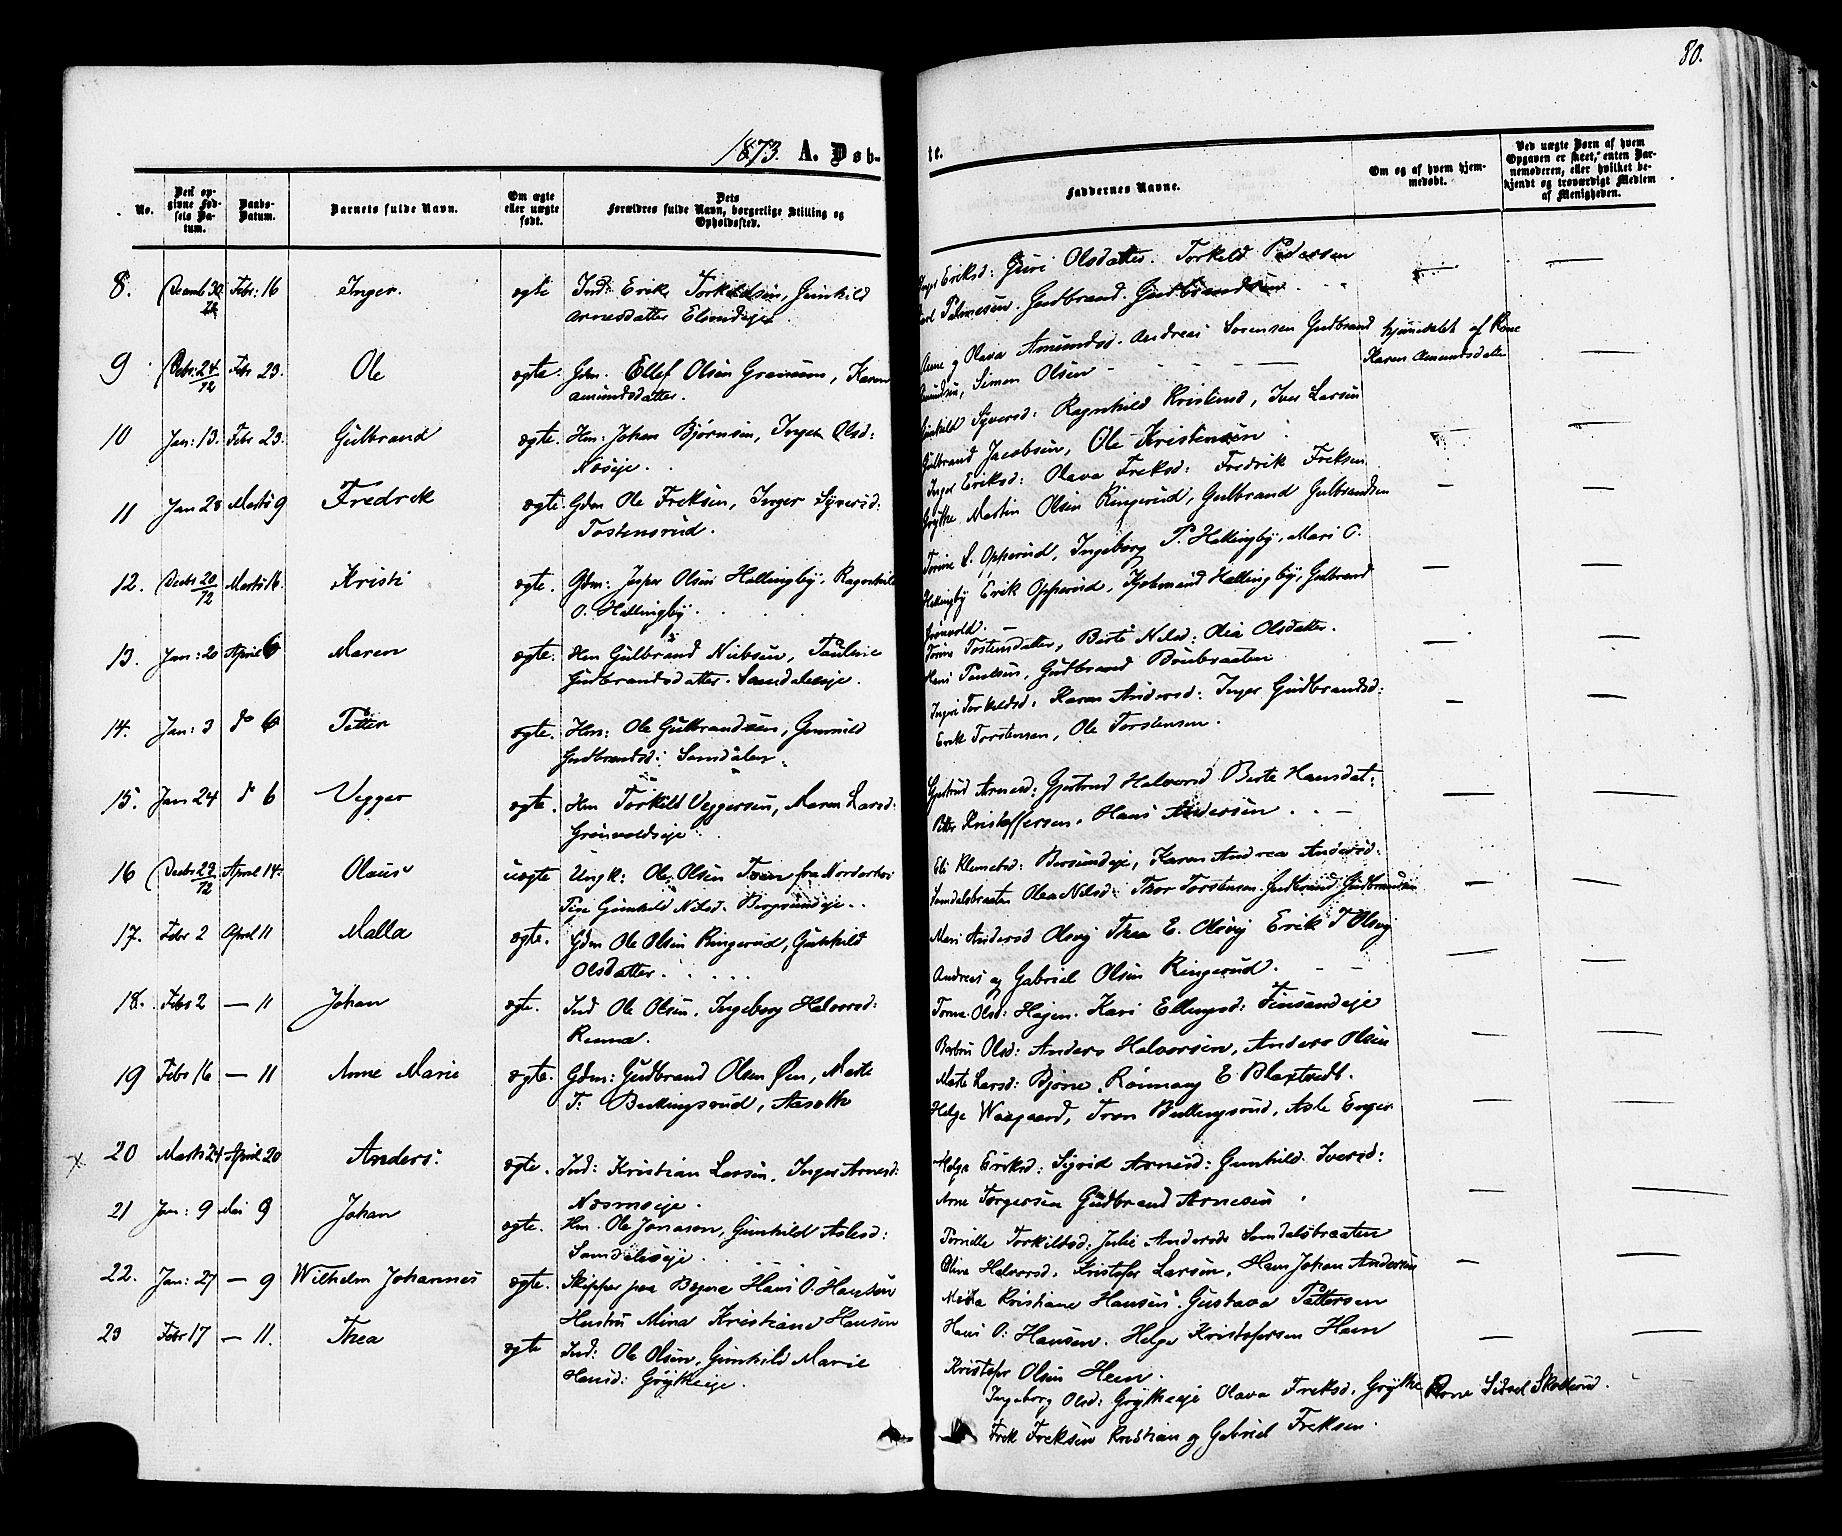 80.
1873. A. Døb-
te.
No.
Den opgivne Fødsels Datum.
Daabs-Datum.
Barnets fulde Navn.
Om ægte eller uægte født.
Dets Forældres fulde Navn, borgerlige Stilling og Opholdssted.
Faddernes Navne.
Om og af hvem hjemmedøbt.
Ved uægte Børn af hvem Opgaven er skeet, enten Barnemoderen, eller hvilket bekjendt og troværdigt Medlem af Menigheden.
8. Decemb 30/72 Febr: 16 Inger. ægte Ind: Erik Torkeldsen, Gunhild
Arnesdatter Elsrudeje
Eriksd: Guri Olsdatter. Torkeld Pedersen
Palmesen. Gudbrand Gudbrandsen
9. Decbr: 24/72 Febr 23. Ole ægte. Gdm. Ellef Olsen Granum, Karen
Amundsdatter.
Anne g Olava Amundsd. Andreas Sorensen Gudbrand hjemmedøbt af Kone
Amundsen, Simon Olsen Karen Amundsdatter
10 Jan: 13. Febr 23. Gulbrand ægte. Hm: Johan Bjørnsen, Inger Olsd:
Næseje.
Gunhild Syversd: Ragnhild Kristensd, Iver Larsen
Gulbrand Jacobsen, Ole Kristensen
11 Jan 28 Marts 9 Fredrek ægte. Gdm Ole Freksen, Inger Syversd:
Tostensrud.
Inger Eriksd: Olava Freksd: Fredrik Freksen
Grytte Martin Olsen Ringerud, Gulbrand Gulbrandsen
12. Decbr 20/72 Marts 16. Kristi ægte. Gdm: Jesper Olsen Hallingby, Ragnhild
O. Hallingby.
Torine L. Opperud, Ingeborg P. Hallingby, Mari O.
Hallingby Erik Opperud, Kjøbmand Hallingby, Gulbrand
Grønvold.
13. Jan: 20 April 6 Maren ægte. Hm Gulbrand Nielsen, Pauline
Gudbrandsdatter. Samdaleneje.
Torine Tostensdatter, Berte Nilsd: Olea Olsdatter.
Hans Paulsen, Gudbrand Buebraaten
14. Jan: 3 do 6 Petter ægte. Hm: Ole Gulbrandsen, Gunnild
Gudbrandsd: Samdalen.
Ingri Torkildsd. Karen Andersd: Inger Gudbrandsd:
Erik Torstensen, Ole Torstensen.
15. Jan 24 d 6 Vegger ægte. Hm Torkild Veggersen, Maren Larsd:
Grønvoldseje
Gjertrud Arnesd: Gjertrud Halvorsd Berte Hansdat:
Petter Kristoffersen. Hans Andersen
16 Decbr 29/72 April 14. Olaus uægte Ungk: Ole Olsen Toen fra Norderhov
Pige Gunhild Nilsd. Bergsundeje
Eli Klemetsd: Bersundeje, Karen Andrea Andersd:
Samdalsbraaten Olea Nilsd: Thor Torstensen Gudbrand Gudbrandsen
17. Febr 2 April 11 Malla ægte. Gdm Ole Olsen Ringerud, Gunhild
Olsdatter.
Mari Andersd Olsvij Thea E. Olsvij Erik T Olsvij
Andreas og Gabriel Olsen Ringerud.
18. Febr 2 — 11 Johan ægte. Ind Ole Olsen. Ingeborg Halvorsd:
Renna.
Torine Olsd: Hagen. Kari Ellingsd: Finsandeje
Olsd: Anders Halvorsen, Anders Olsen
19 Febr 16 — 11 Anne Marie ægte. Gdm: Gudbrand Olsen Øen, Marte
T: Bækkingsrud, Aasætte
Marte Larsd: Bjøne, Rønnaug E Blaxtvedt.
Helge Waagaard, Tron Bukkingsrud, Asle Enger
x 20 Marts 24 April 20 Anders: ægte. Ind: Kristian Larsen, Inger Arnesd:
Næsmoeje.
Helga Eriksd: Sigrid Arnesd: Gunhild Iversd:
Arne Torgersen Gudbrand Arnesen
21 Jan: 9 Mai 9 Johan ægte. Hm. Ole Jonason, Gunhild Aslesd:
Samdaleneje
Pernille Torkildsd: Julie Andersd Samdalsbraaten
Oline Halvorsd. Kristofer Larsen, Hans Johan Andersen
22. Jan: 27 — 9 Wilhelm Johannes ægte. Skipper paa Bægna Hans O. Hansen
Hustru Mina Kristiane Hansen
Kristiane Hansen Gustava Pettersen
Hans O: Hansen. Helge Kristofersen Hæn
Kristofer Olsen Hæn.
23 Febr 17 — 11. Thea ægte Ind: Ole Olsen, Gunhild Marie
Hansd: Grytteeje.
Ingeborg Olsd: Grytteeje Olava Freksd. Grytte Kone Sidsel Skollerud.
Frek Freksen Kristian og Gabriel Freksen.